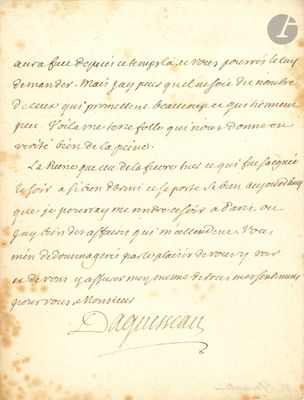 aura fait depuis ce temps la, et vous pourrés le luy
demander. Mais j'ay peur qu'elle ne soit du nombre
de ceux qui promettent beaucoup et qui tiennent
peu. Voila une terre folle qui nous donne en
verité bien de la peine.
La Reine qui eut de la fievre hier et qui fut saignée
le soir a si bien dormi et se porte si bien aujourd'huy
que je pourray me rendre ce soir a Paris ou
j'ay bien des affaires qui m'attendent. Vous
m'en dedommagerés par le plaisir de vous y voir
et de vous y assurer moy mesme de tous mes sentimens
pour vous, Monsieur
Daguesseau